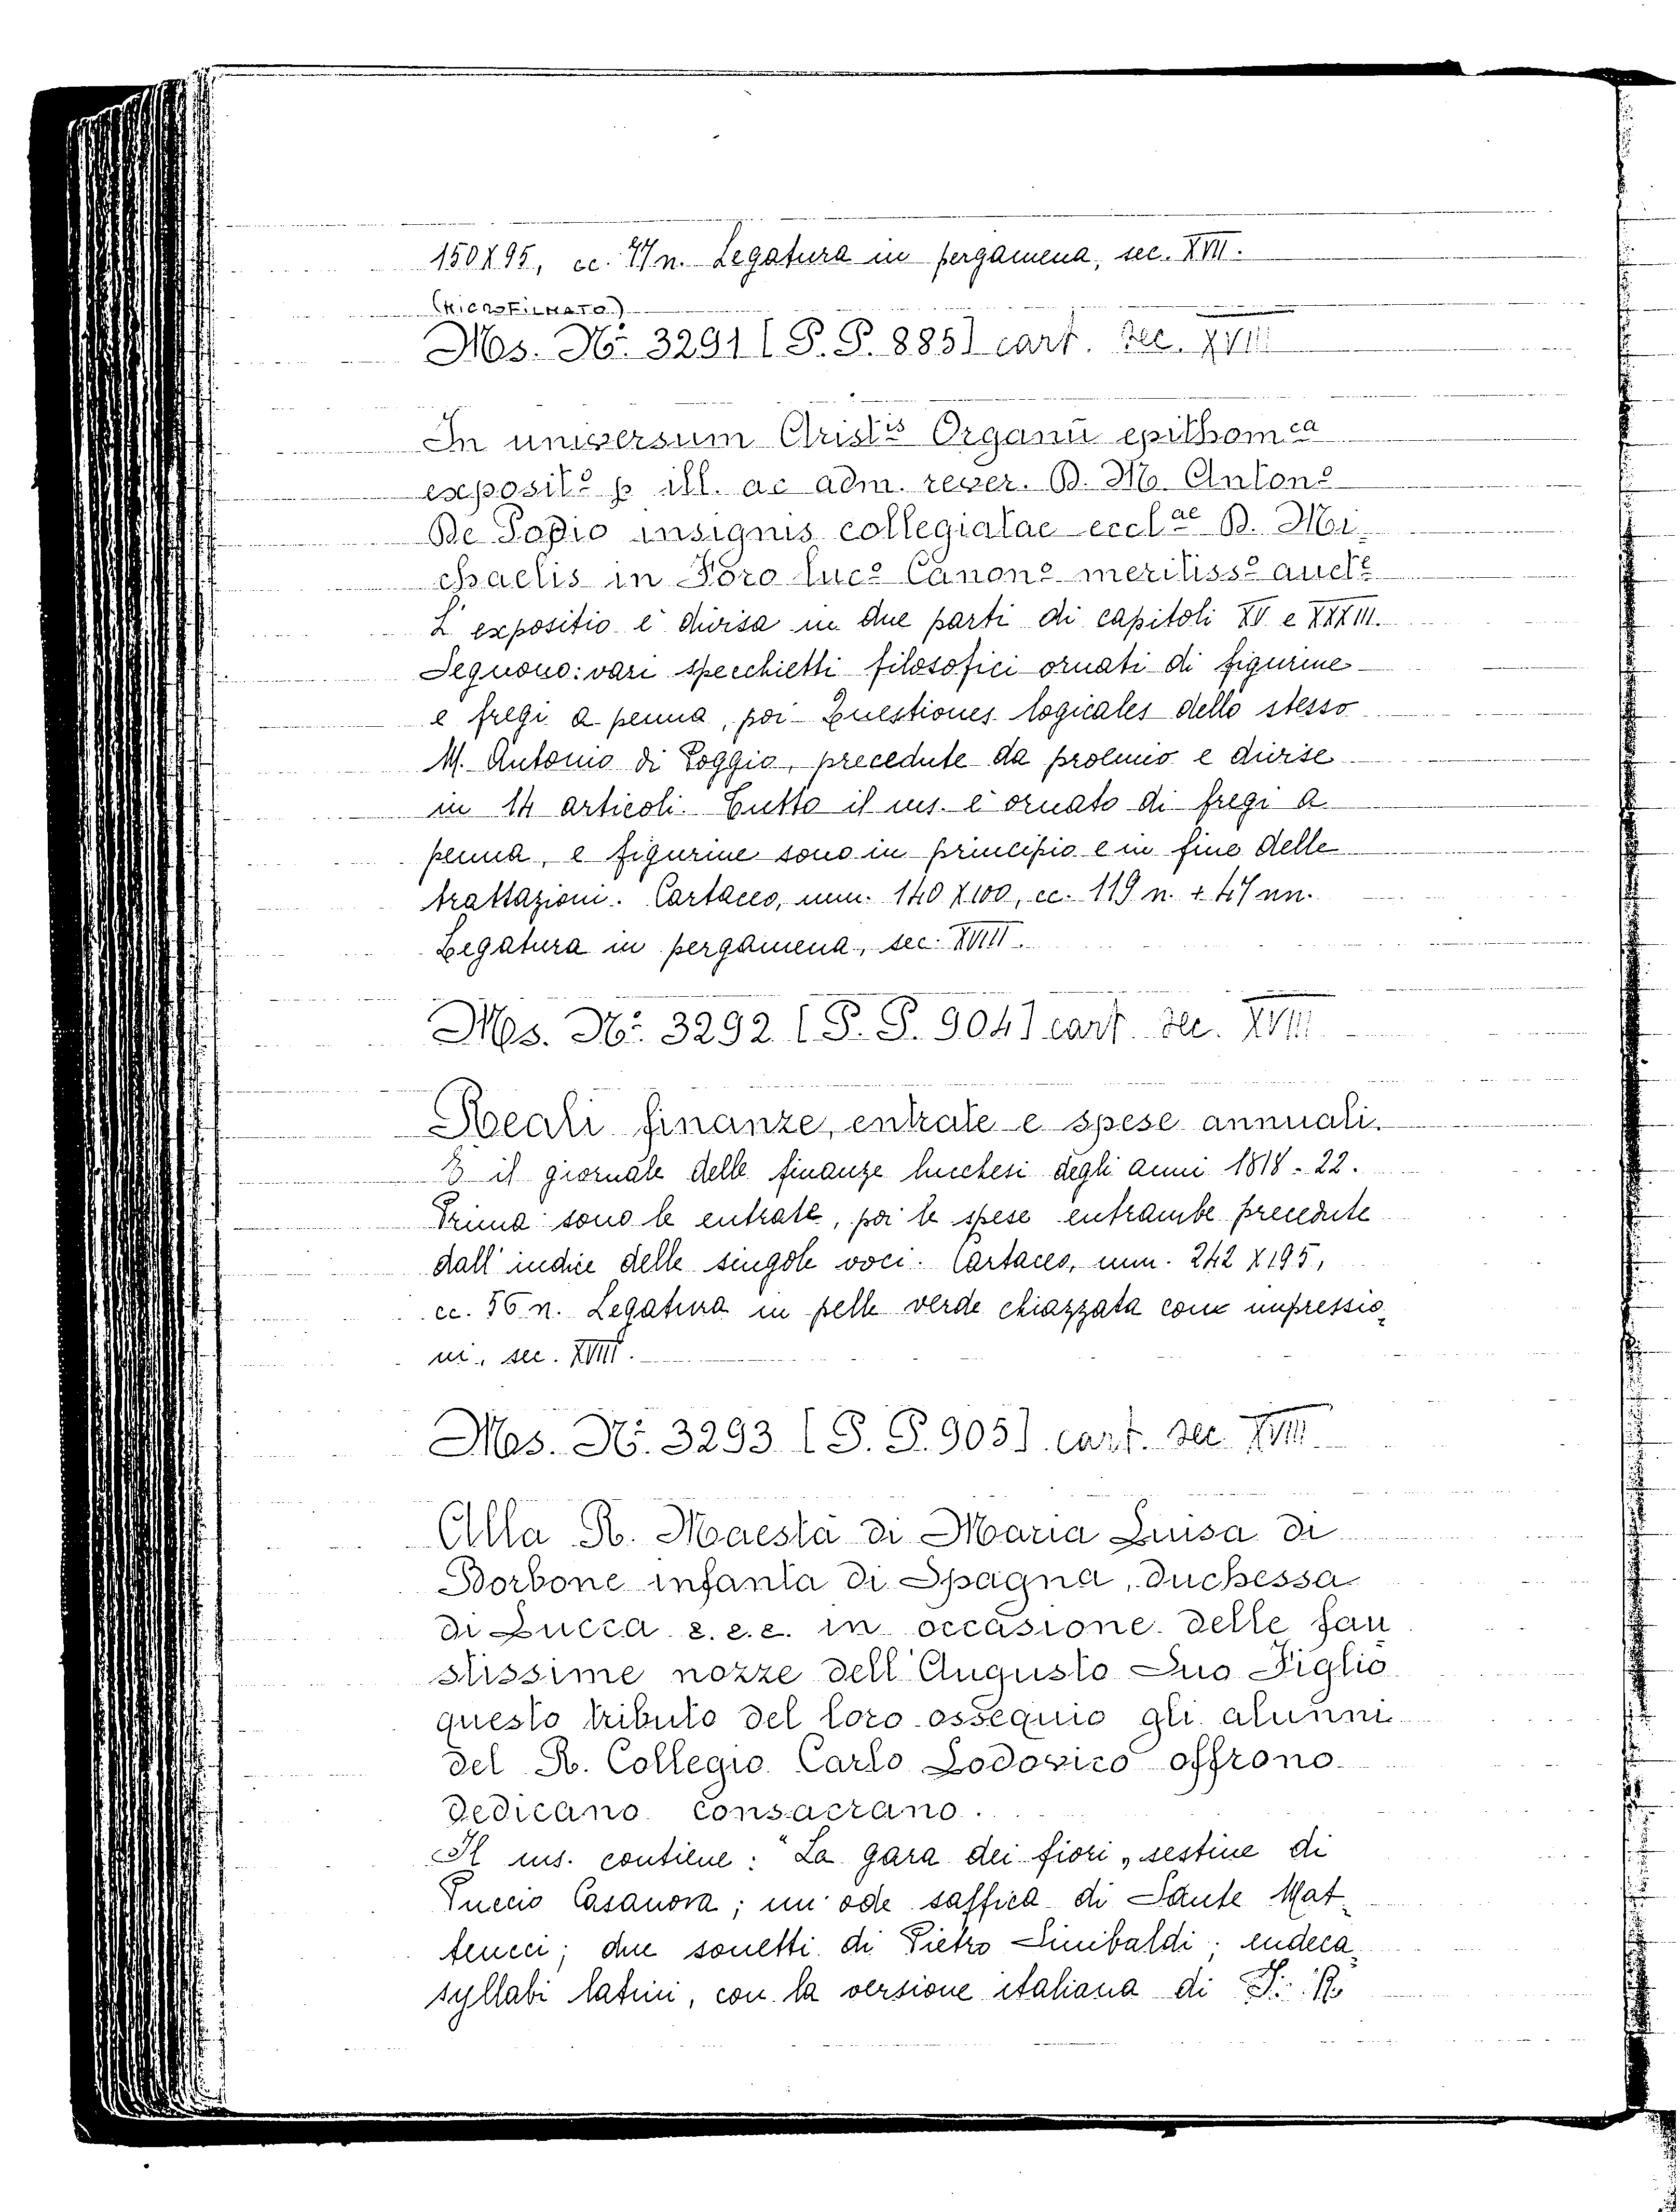 150 X 95, cc. 77 n. Legatura in pergamena, sec. XVII.
(MICROFILMATO)
Ms. N. 3291 [P. P. 885] cart. sec. XVIII
In universum Aristis Organū epithomca
exposito p ill. ac adm. rever. D. M. Antono
De Podio insignis collegiatae ecclae D. Mi-
chaelis in Foro luco Canono meritisso aucte
L'expositio è divisa in due parti di capitoli XV e XXXIII.
Seguono: vari specchietti filosofici ornati di figurine
e fregi a penna, poi Questiones logicales dello stesso
M. Antonio di Poggio, precedute da proemio e divise
in 14 articoli. Tutto il ms. è ornato di fregi a
penna, e figurine sono in principio e in fine delle
trattazioni. Cartaceo, mm. 140 X 100, cc. 119 n. + 47 nn.
Legatura in pergamena, sec. XVIII.
Ms. N. 3292 [P. P. 904] cart. sec. XVIII
Reali finanze, entrate e spese annuali.
È il giornale delle finanze lucchesi degli anni 1818-22.
Prima sono le entrate, poi le spese entrambe precedute
dall'indice delle singole voci. Cartaceo, mm. 242 X 195,
cc. 56 n. Legatura in pelle verde chiazzata con impressio-
ni, sec. XVIII.
Ms. N. 3293 [P. P. 905] cart. sec. XVIII
Alla R. Maestà di Maria Luisa di
Borbone infanta di Spagna, duchessa
di Lucca e.e.e. in occasione delle fau
stissime nozze dell'Augusto Suo Figlio
questo tributo del loro ossequio gli alunni
del R. Collegio Carlo Lodovico offrono
dedicano consacrano.
Il ms. contiene: "La gara dei fiori„ sestine di
Puccio Casanova; un'ode saffica di Sante Mat-
teucci; due sonetti di Pietro Sinibaldi; endeca-
syllabi latini, con la versione italiana di F. R.